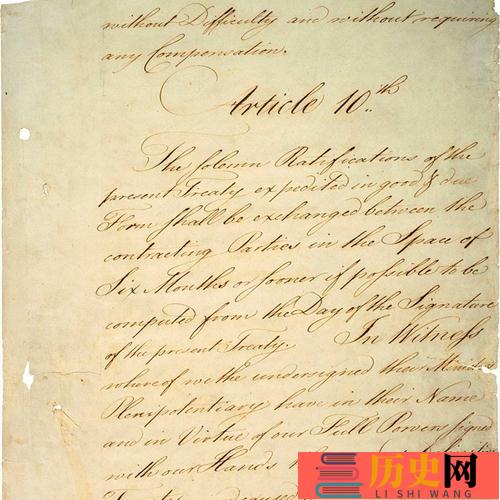 without Difficulty and without requiring
any Compensation.
Article 10.th
The solemn Ratifications of the
present Treaty expedited in good & due
Form shall be exchanged between the
contracting Parties in the Space of
Six Months or sooner if possible to be
computed from the Day of the Signature
of the present Treaty. In Witness
whereof we the undersigned their Ministers
Plenipotentiary have in their Name
and in Virtue of our Full Powers signed
with our Hands
历史网
LI SHI WANG